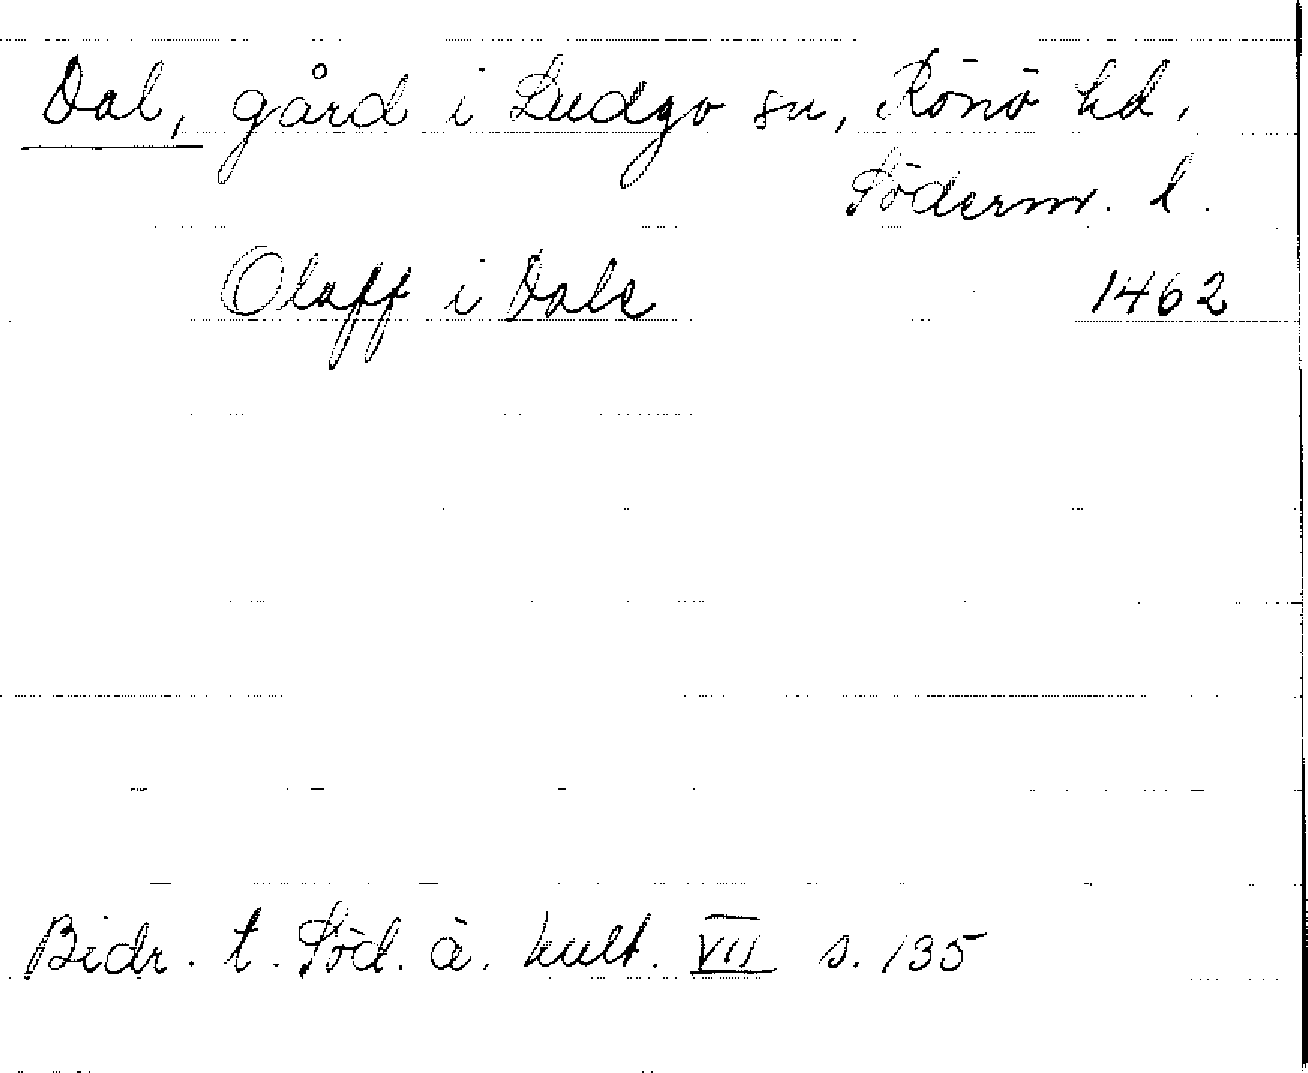 Dal, gård i Ludgo sn, Rönö hd,
Söderm. l.
Olaff i Dale 1462
Bidr. t. Söd. ä. kult. VII s. 135